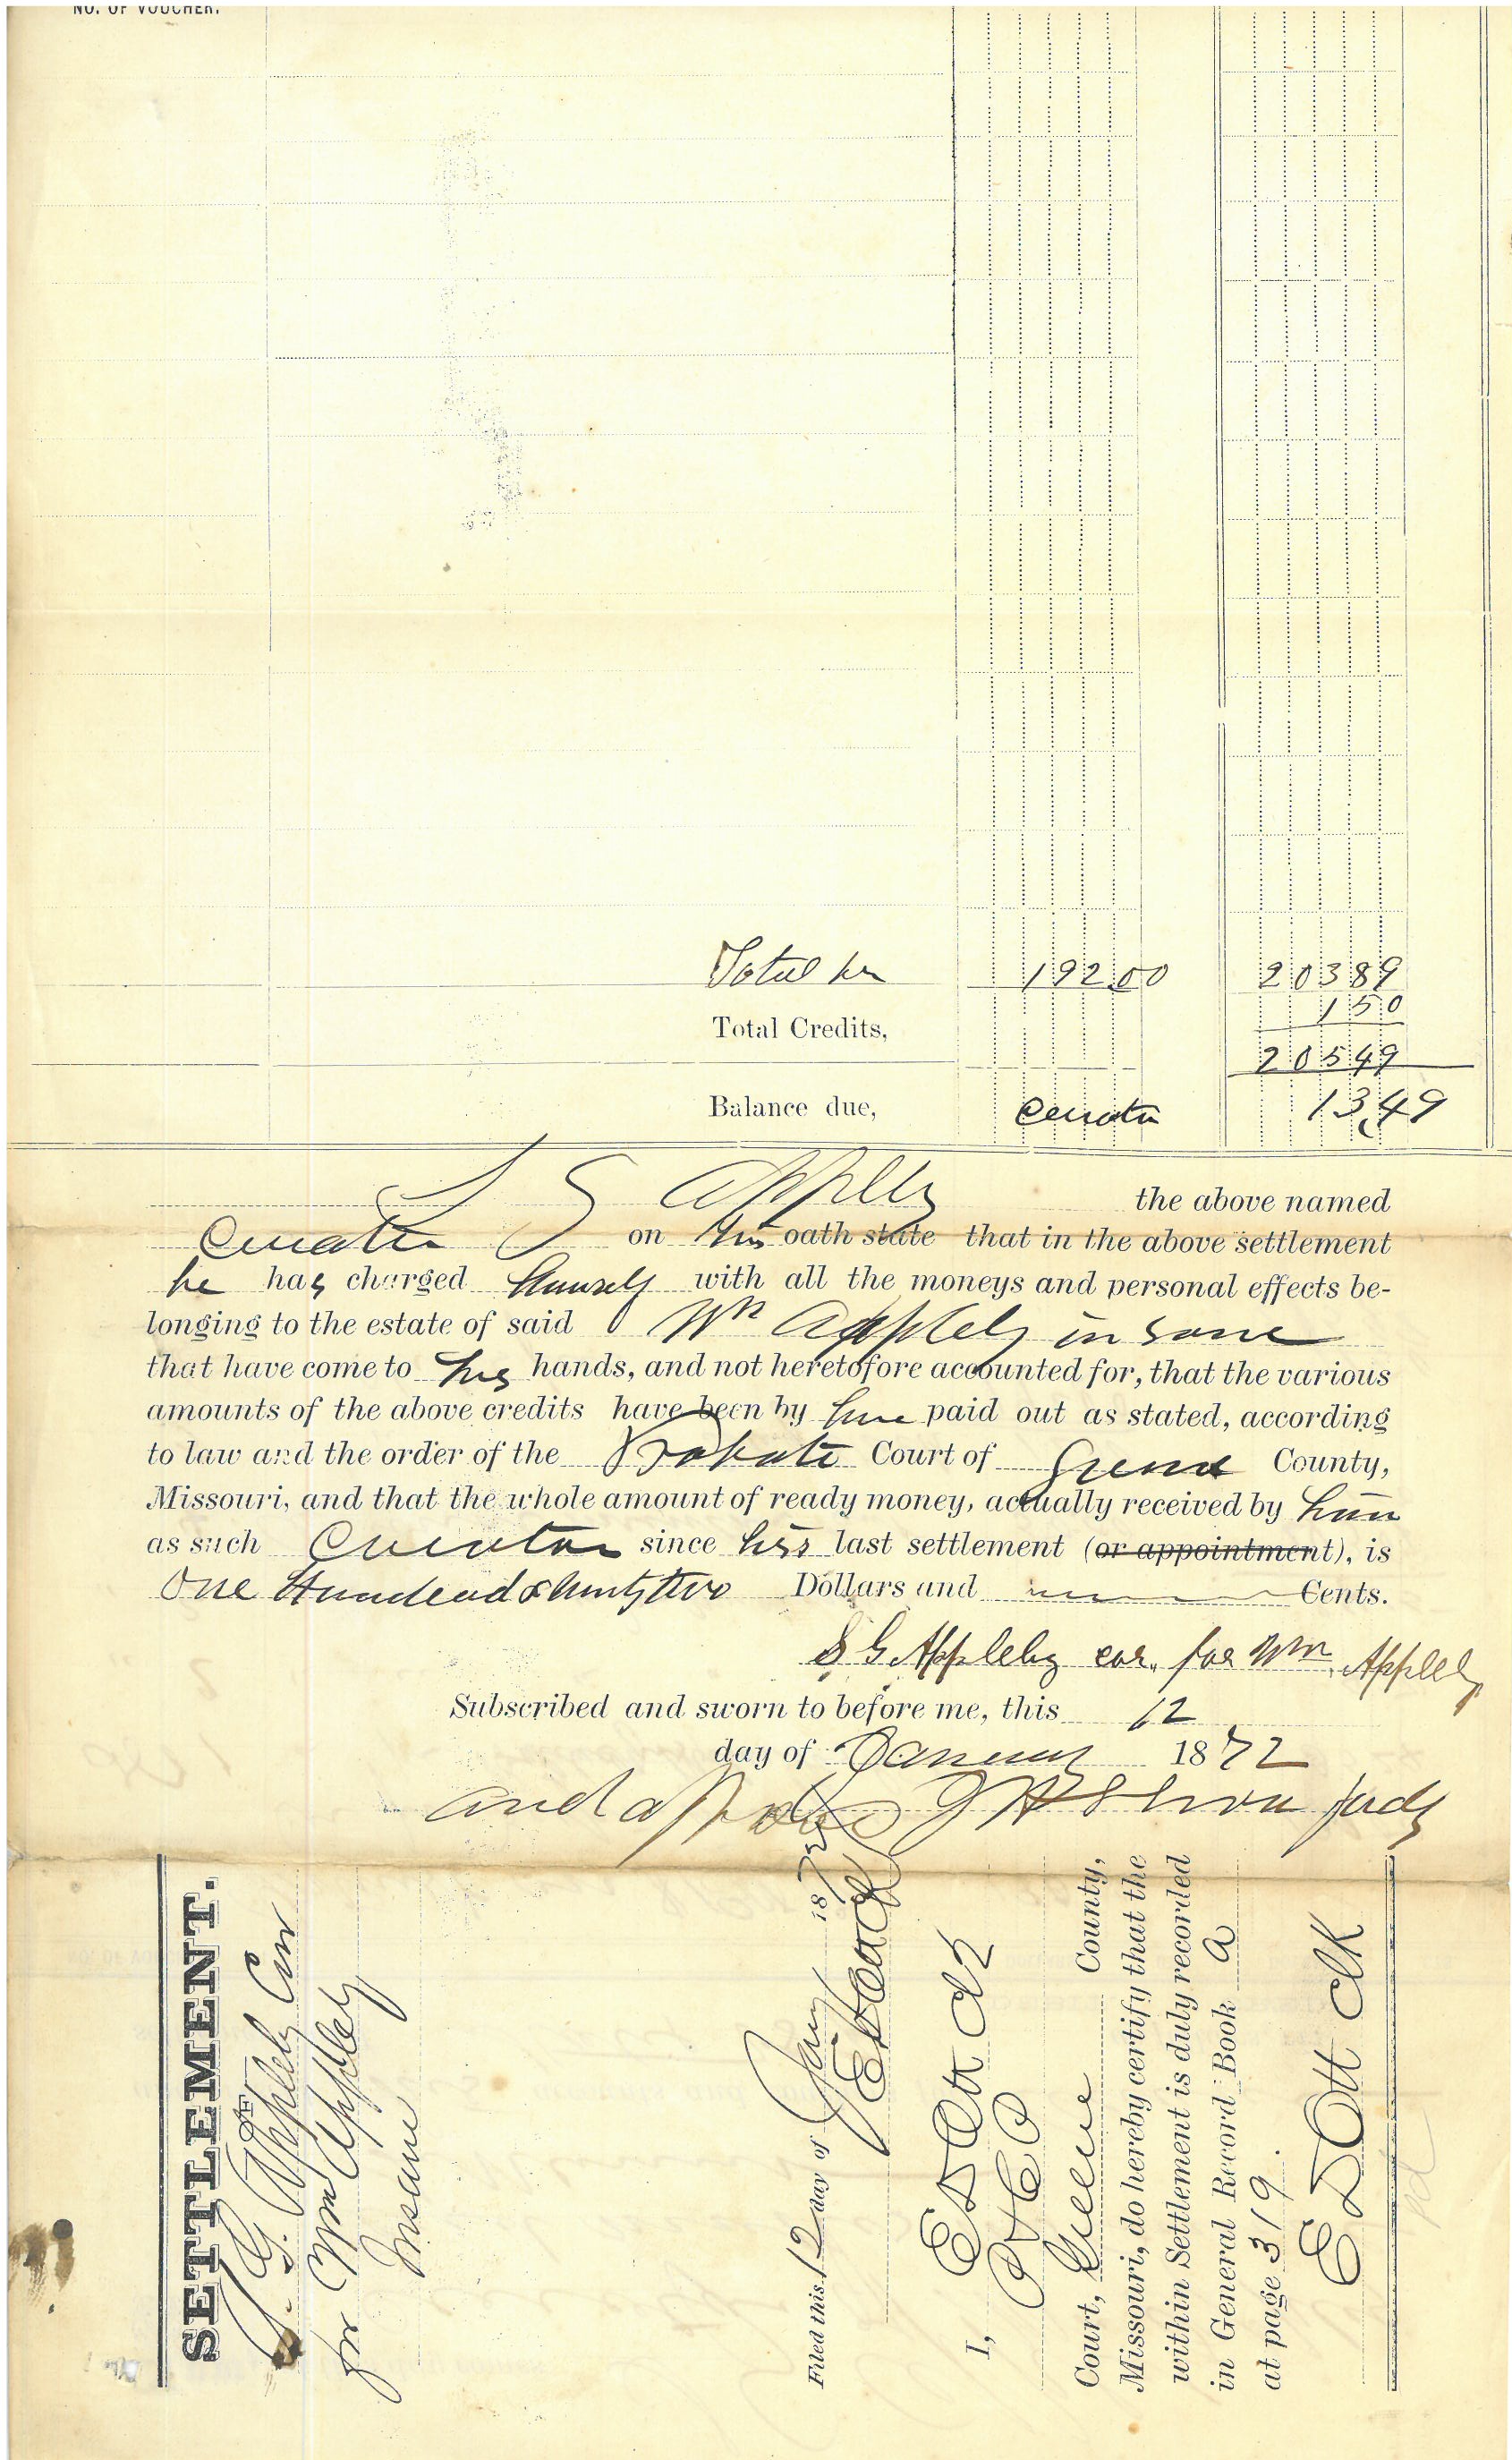 NO. OF VOUCHER.
192.00 20389
150
Total Credits,
20549
Balance due, Curator 13.49
S G Appleby the above named
Curator on his oath state that in the above settlement
he has charged himself with all the moneys and personal effects be-
longing to the estate of said Wm Appleby insane
that have come to his hands, and not heretofore accounted for, that the various
amounts of the above credits have been by him paid out as stated, according
to law and the order of the Probate Court of Greene County,
Missouri, and that the whole amount of ready money, actually received by him
as such Curator since his last settlement (or appointment), is
One Hundred & Ninty two Dollars and Cents.
S G Appleby cur. for Wm Appleby
Subscribed and sworn to before me, this 12
day of January 1872
and approved Judg
SETTLEMENT.
OF
S. G. Appleby Cur
for Wm Appleby
Insane
Filed this 12 day of Jany 1872
I, E D Ott Clk
Court, Greene County,
Missouri, do hereby certify that the
within Settlement is duly recorded
in General Record Book A
at page 319.
E D Ott Clk